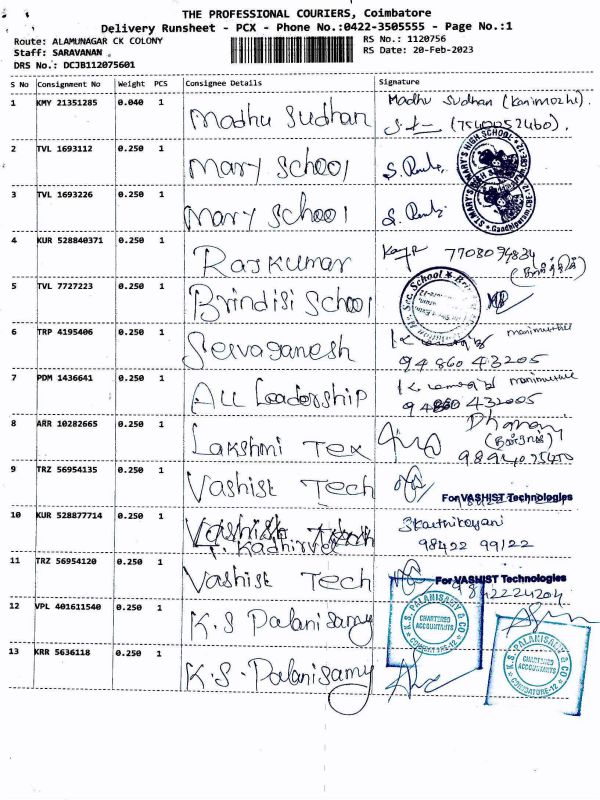 THE PROFESSIONAL COURIERS, Coimbatore
Delivery Runsheet - PCX - Phone No.:0422-3505555 - Page No.:1
Route: ALAMUNAGAR CK COLONY
RS No.: 1120756
Staff: SARAVANAN
RS Date: 20-Feb-2023
DRS No.: DCJB112075601
S No Consignment No Weight PCS Consignee Details Signature
1 KMY 21351285 0.040 1 Madhu Sudhan Madhu Sudhan (Kanimozhi).
(7540052460).
2 TVL 1693112 0.250 1 Mary School
3 TVL 1693226 0.250 1 Mary School
ST.MARY'S HIGH SCHOOL
Gandhipuram, CBE-12
4 KUR 528840371 0.250 1 Rajkumar 7708094834
5 TVL 7727223 0.250 1 Brindisi School
6 TRP 4195406 0.250 1 Selvaganesh
94860 43205
7 PDM 1436641 0.250 1 All Leadership
8 ARR 10282665 0.250 1 Lakshmi Tex Dharani
9 TRZ 56954135 0.250 1 Vashist Tech
For VASHIST Technologies
10 KUR 528877714 0.250 1 Kadhirvel
98422 99122
11 TRZ 56954120 0.250 1 Vashist Tech For VASHIST Technologies
12 VPL 401611540 0.250 1 K.S Palanisamy
K.S. PALANISAMY & CO
CHARTERED
ACCOUNTANTS
COIMBATORE-12
13 KRR 5636118 0.250 1 K.S. Palanisamy
K.S. PALANISAMY & CO
CHARTERED
ACCOUNTANTS
COIMBATORE-12